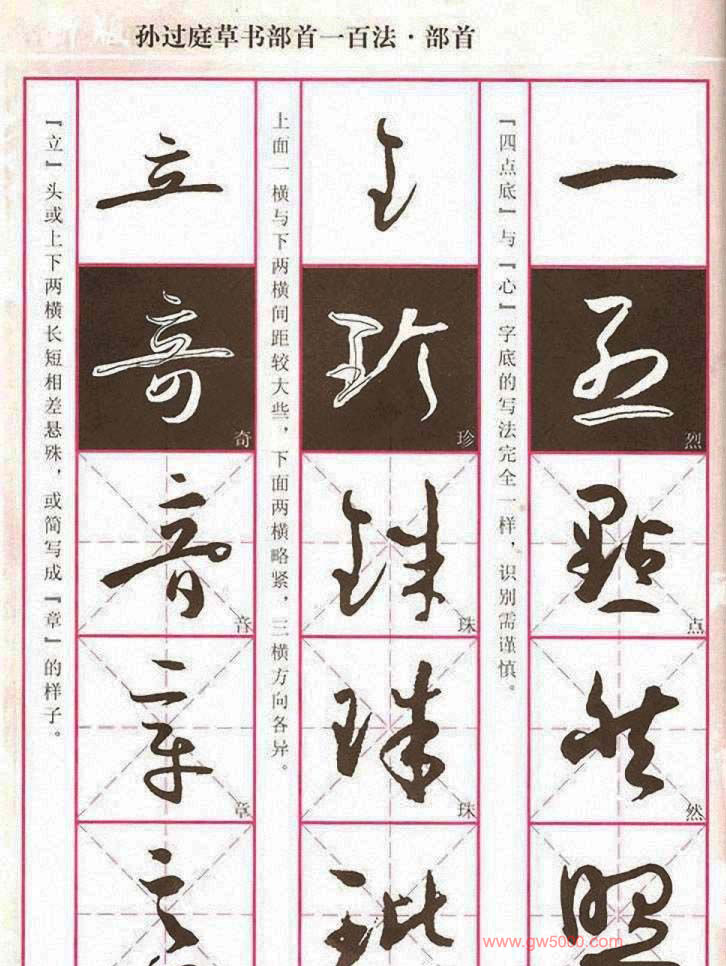 孙过庭草书部首一百法·部首
『四点底』与『心』字底的写法完全一样，识别需谨慎。
烈
点
然
上面一横与下两横间距较大些，下面两横略紧，三横方向各异。
珍
珠
珠
『立』头或上下两横长短相差悬殊，或简写成『章』的样子。
立
奇
音
章
www.gw5060.com